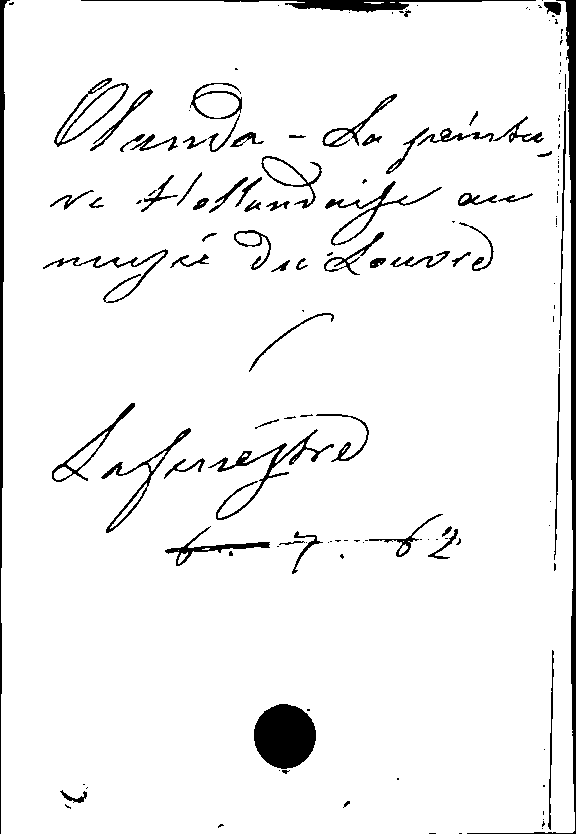 Olanda - La peintu-
re Hollandaise au
musée du Louvre
Lafenestre
6. 7. 62